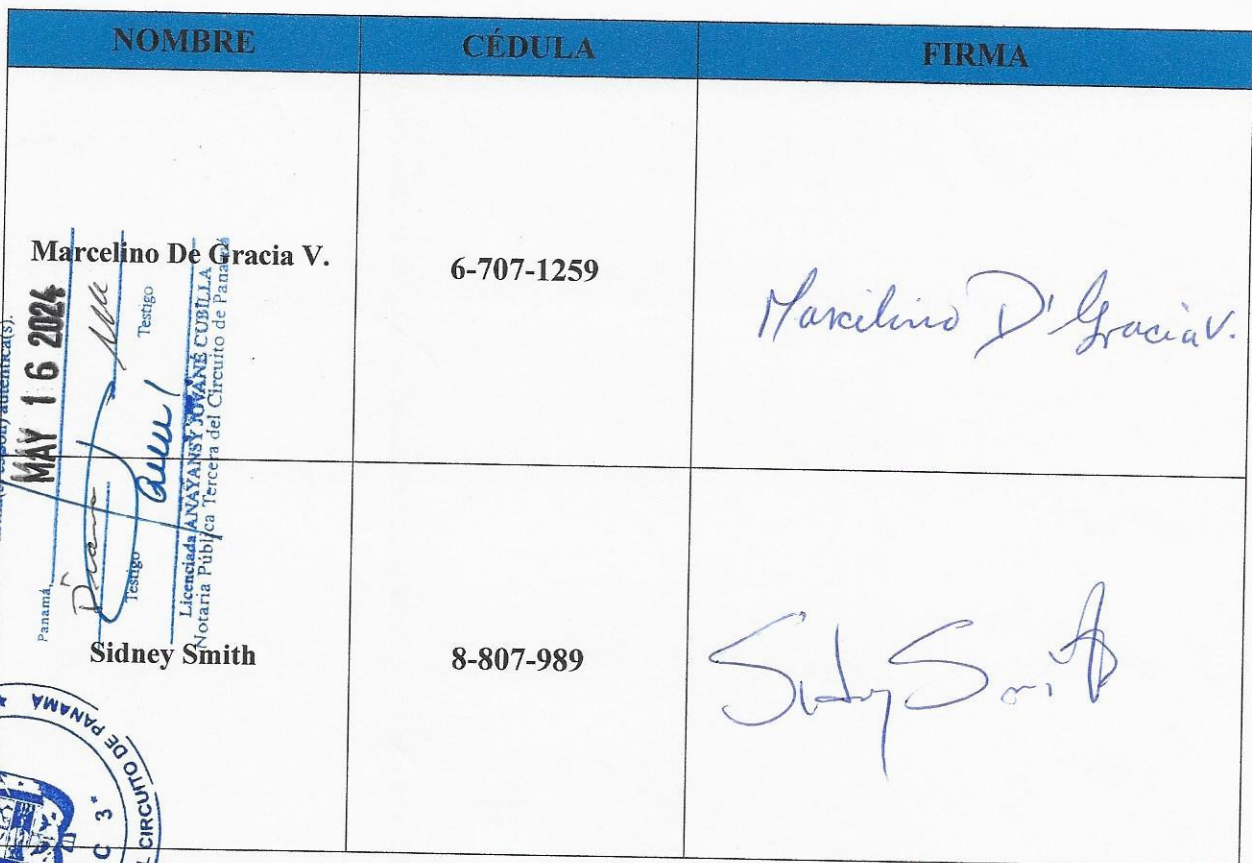 NOMBRE CÉDULA FIRMA
Marcelino De Gracia V. 6-707-1259 Marcilino D' Gracia V.
Sidney Smith 8-807-989 Sidny Smith
autentica(s).
Panamá, MAY 16 2024
Testigo Testigo
Licenciada ANAYANSY JOVANÉ CUBILLA
Notaria Pública Tercera del Circuito de Panamá
CIRCUITO DE PANAMA
C 3ª